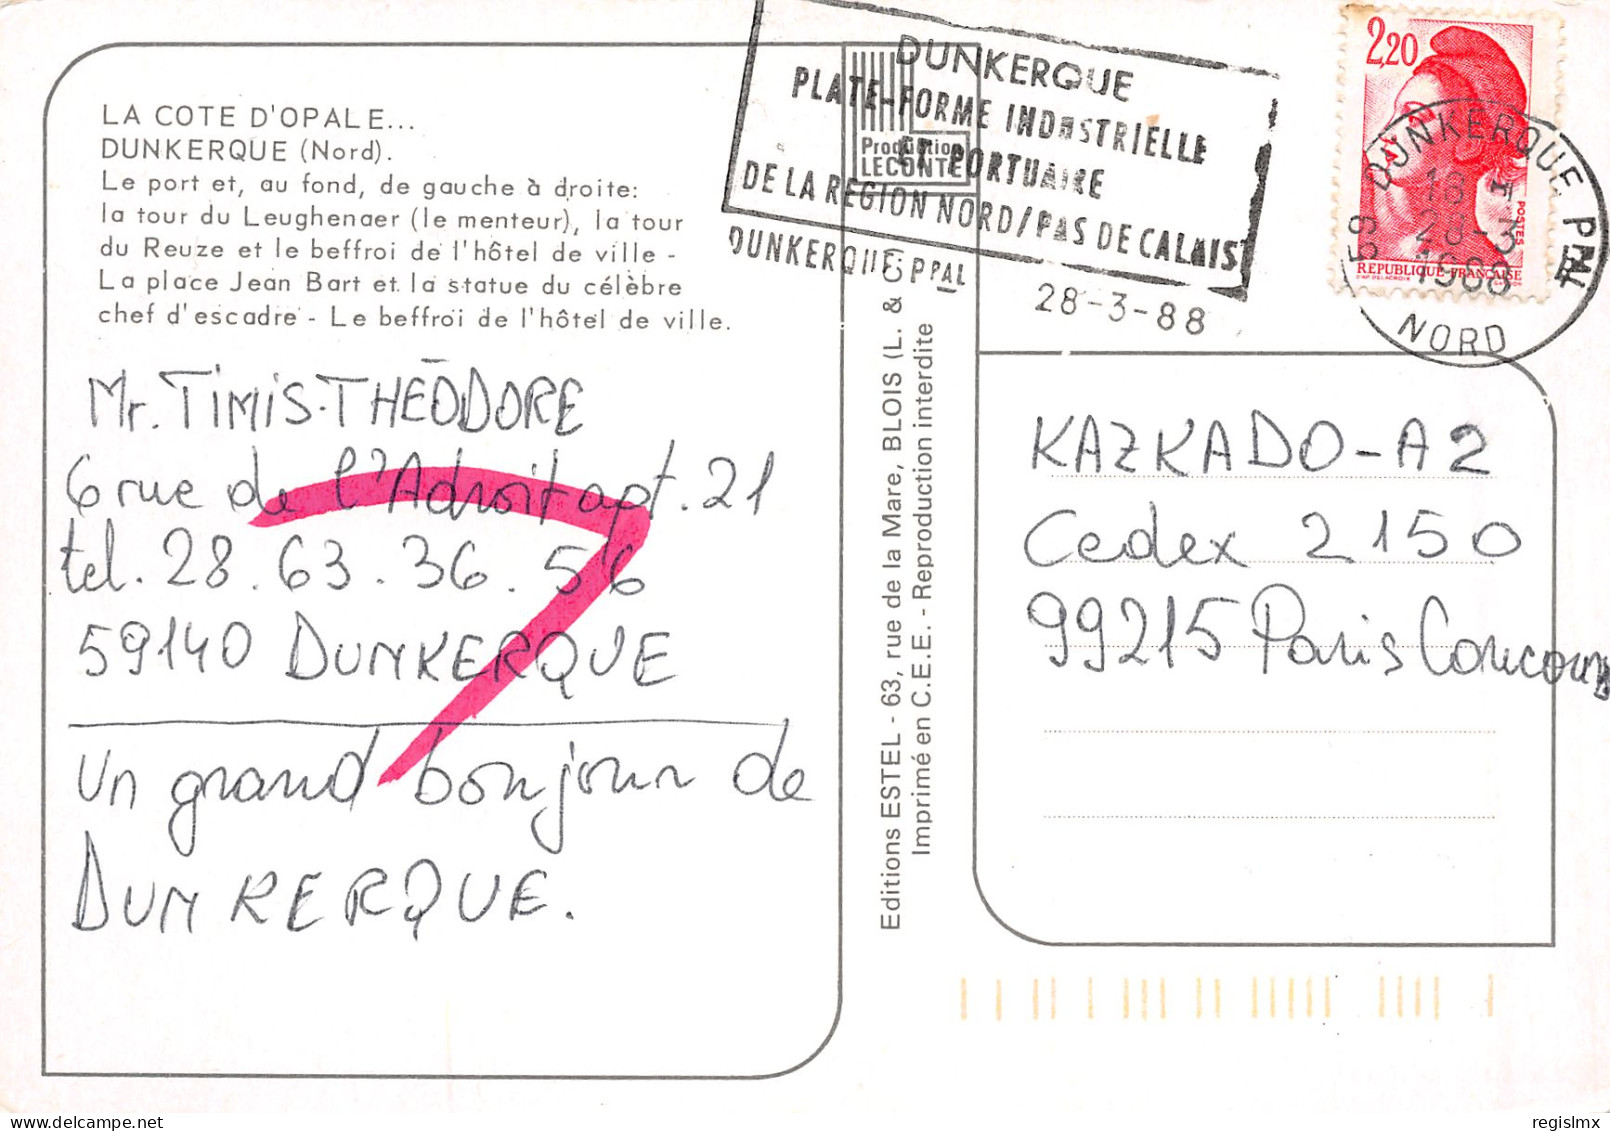 LA COTE D'OPALE...
DUNKERQUE (Nord).
Le port et, au fond, de gauche à droite:
la tour du Leughenaer (le menteur), la tour
du Reuze et le beffroi de l'hôtel de ville -
La place Jean Bart et la statue du célèbre
chef d'escadre - Le beffroi de l'hôtel de ville.
Mr. TIMIS-THÉODORE
6 rue de l'Adroit apt. 21
tel. 28.63.36.56
59140 DUNKERQUE
Un grand bonjour de
DUNKERQUE.
Production
LECONTE
Editions ESTEL - 63, rue de la Mare, BLOIS (L. & C.)
Imprimé en C.E.E. - Reproduction interdite
DUNKERQUE
PLATE-FORME INDUSTRIELLE
ET PORTUAIRE
DE LA REGION NORD/PAS DE CALAIS
DUNKERQUE PPAL
28-3-88
2,20
POSTES
REPUBLIQUE FRANÇAISE
59 DUNKERQUE PPAL
18 H
28-3
1988
NORD
KAZKADO-A2
Cedex 2150
99215 Paris Concours
regislmx